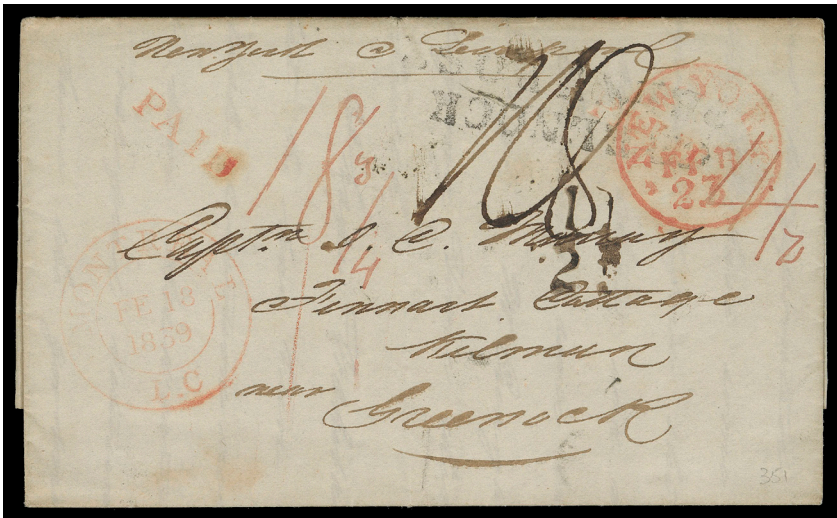 New York @ Liverpool
PAID
18 3/4
NEW YORK
FEB
23
4 1/2
1
2
Capt.n J. C. Murray
Finnart Cottage
Kilmun
near
Greenock
MONTREAL
FE 18
1839
L.C
351